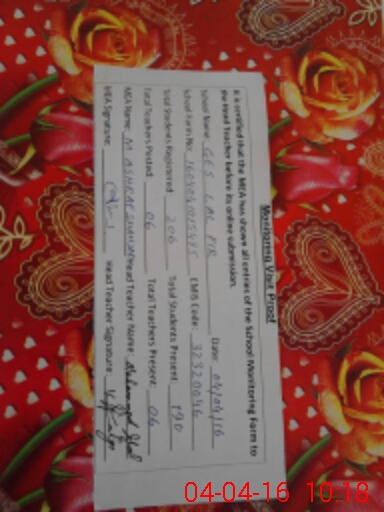 Monitoring Visit Proof
It is certified that the MEA has shown all entries of the School Monitoring Form to
the Head Teacher before its online submission.
Date: 04/04/16
School Name: GES LAL PIR
School Form No: EMIS Code: 32320046
Total Students Registered: 206 Total Students Present: 190
Total Teachers Posted: 06 Total Teachers Present: 06
MEA Name: M ASHRAF Head Teacher Name:
MEA Signature: Head Teacher Signature:
04-04-16 10:18